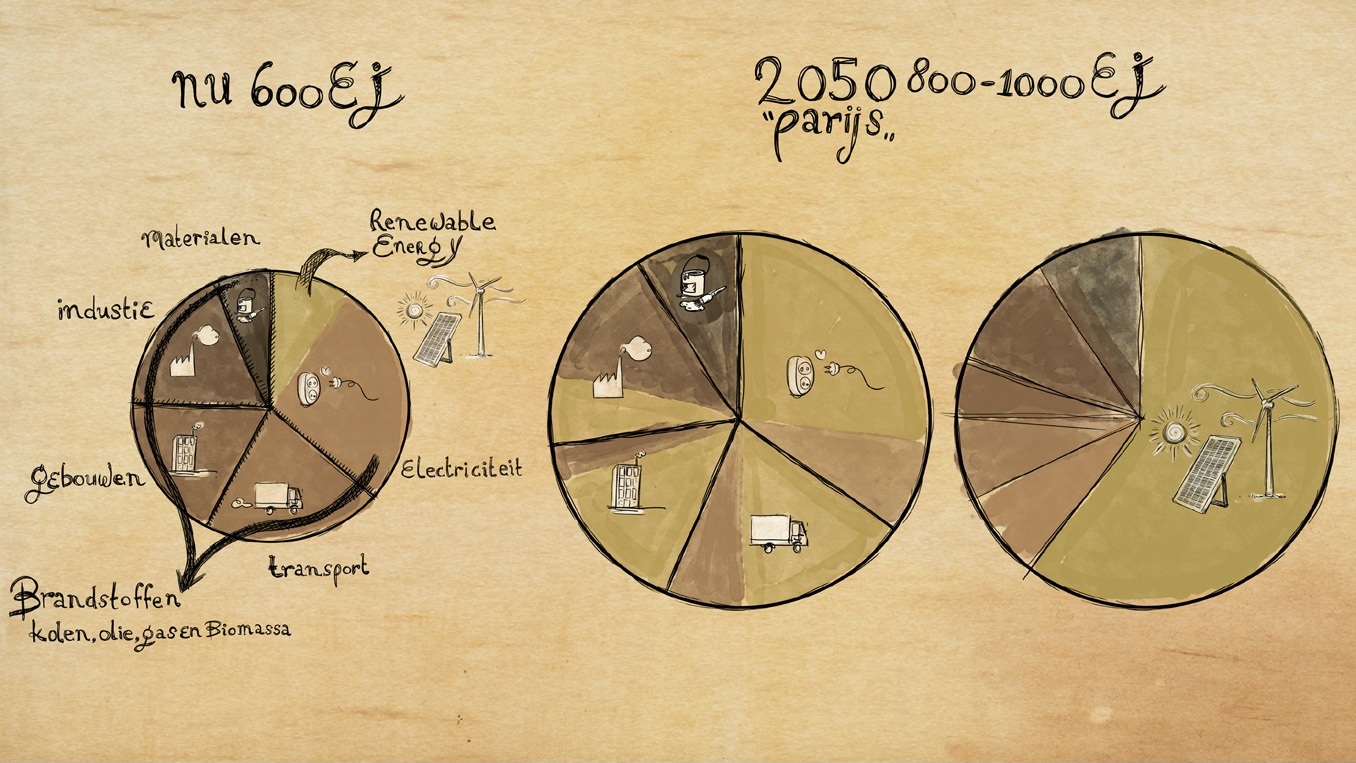 nu 600 Ej
2050 800-1000 Ej
"parijs"
Materialen
Renewable
Energy
industie
gebouwen
Electriciteit
transport
Brandstoffen
kolen, olie, gas en Biomassa